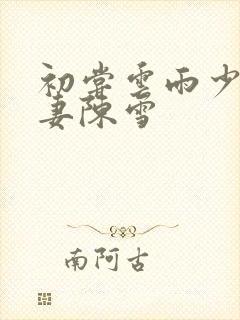 初尝云雨少
妻陈雪
南阿古